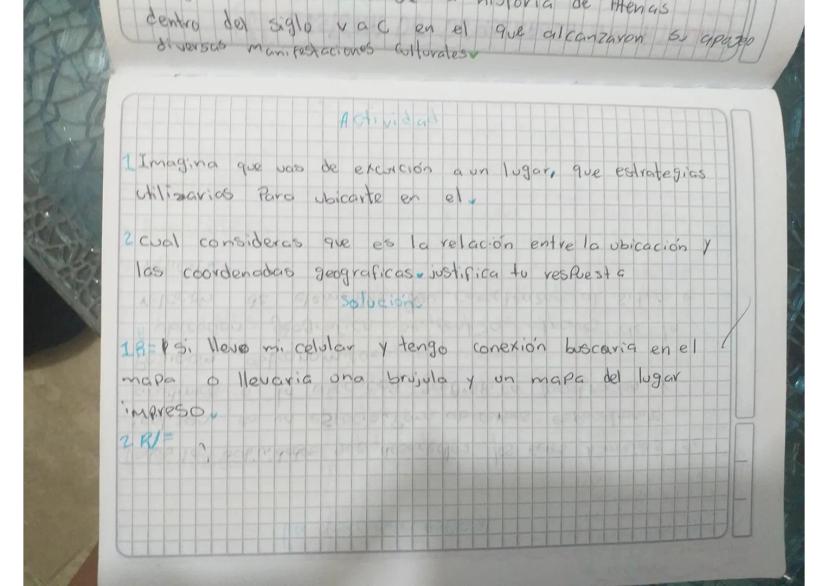 historia de Atenas
dentro del siglo v a c en el que alcanzaron su apogeo
diversas manifestaciones culturales
Actividad
1 Imagina que vas de excrición a un lugar, que estrategias
Utilizarias Para ubicarte en el.
2 cual consideras que es la relación entre la ubicación y
las coordenadas geograficas. justifica tu respuesta
Solución
1R= si llevo mi celular y tengo conexión buscaria en el
mapa o llevaria una brújula y un mapa del lugar
impreso.
2 R/=